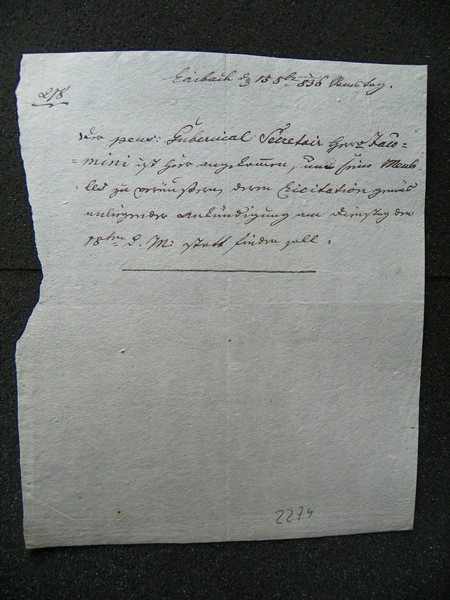 Laibach d 15 8br 836 Samstag.
278
Der pens: Gubernial Secretair Herr Jaco=
=mini ist hier angekommen, um seine Meub=
les zu veräußern, deren Licitation gemäß
anliegender Ankündigung am Dienstag den
18ten d. M: statt finden soll.
2274